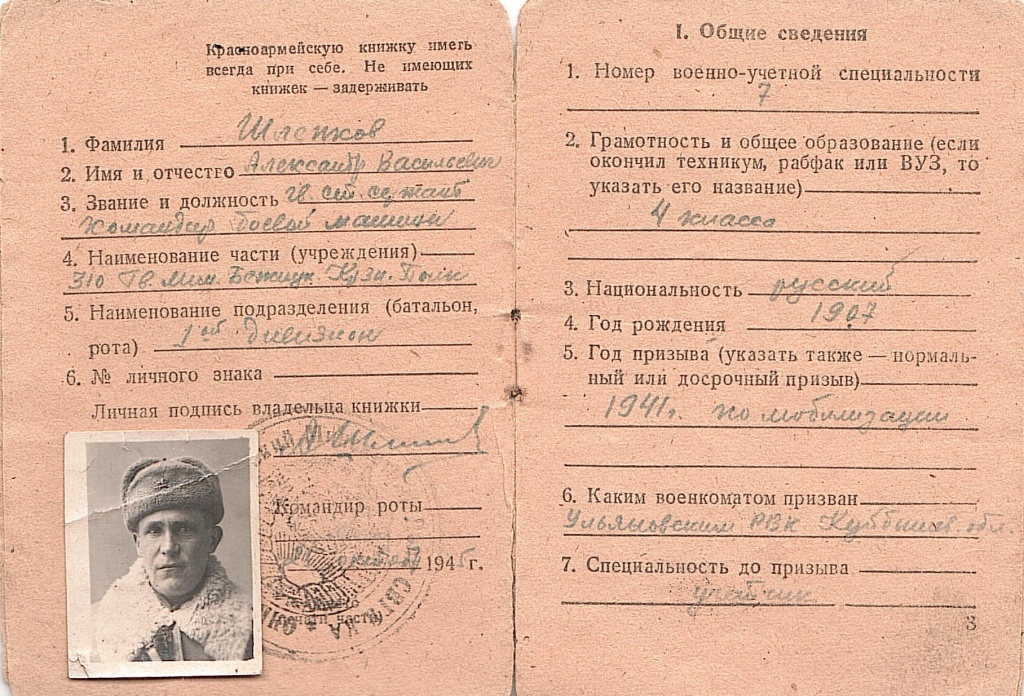 Красноармейскую книжку иметь
всегда при себе. Не имеющих
книжек — задерживать
1. Фамилия Шлепков
2. Имя и отчество Александр Васильевич
3. Звание и должность гв. ст. сержант
Командир боевой машины
4. Наименование части (учреждения)
310 Гв. Мин. Полк
5. Наименование подразделения (батальон,
рота) 1ый дивизион
6. № личного знака
Личная подпись владельца книжки
Командир роты
1945 г.
печати части
I. Общие сведения
1. Номер военно-учетной специальности
7
2. Грамотность и общее образование (если
окончил техникум, рабфак или ВУЗ, то
указать его название)
4 класса
3. Национальность русский
4. Год рождения 1907
5. Год призыва (указать также — нормаль-
ный или досрочный призыв)
1941 г. по мобилизации
6. Каким военкоматом призван
Ульяновским РВК Куйбышев. обл.
7. Специальность до призыва
учетчик
3